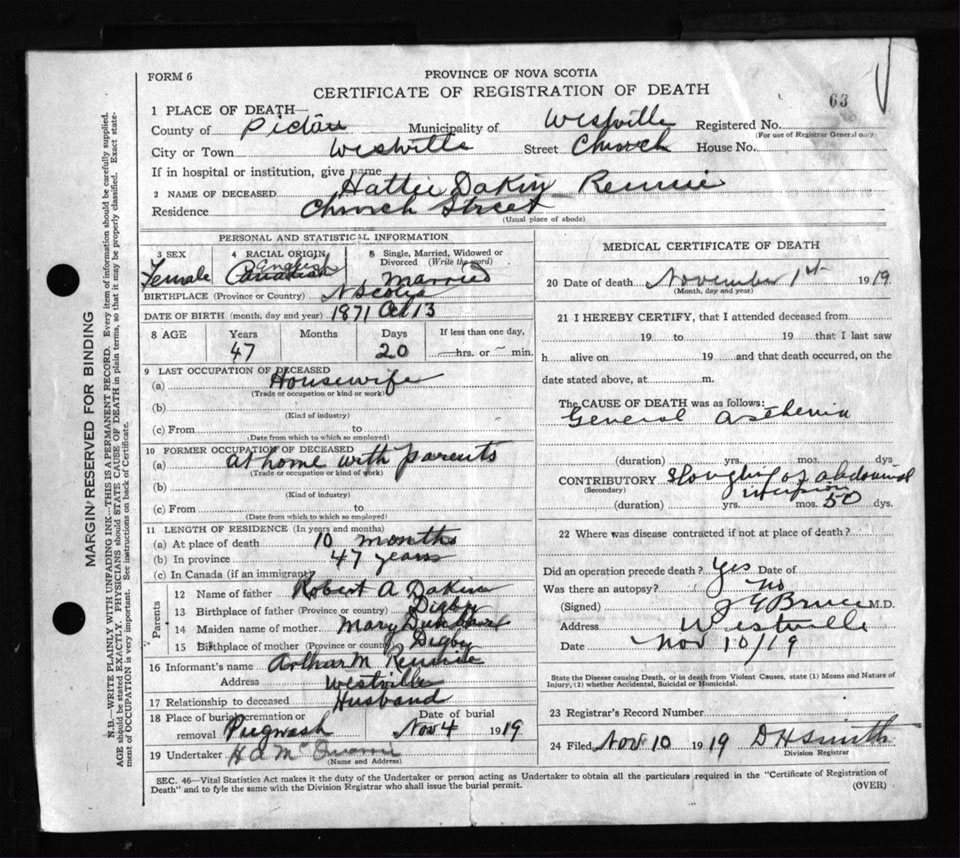 FORM 6
PROVINCE OF NOVA SCOTIA
CERTIFICATE OF REGISTRATION OF DEATH
63
1 PLACE OF DEATH—
County of Pictou Municipality of Westville Registered No.
(For use of Registrar General only)
City or Town Westville Street Church House No.
If in hospital or institution, give name
2 NAME OF DECEASED Hattie Dakin Rennie
Residence Church Street
(Usual place of abode)
PERSONAL AND STATISTICAL INFORMATION
3 SEX 4 RACIAL ORIGIN 5 Single, Married, Widowed or Divorced (Write the word)
Female English Married
BIRTHPLACE (Province or Country) N Scotia
DATE OF BIRTH (month, day and year) 1871 Oct 13
8 AGE Years Months Days If less than one day,
47 20 hrs. or min.
9 LAST OCCUPATION OF DECEASED
(a) Housewife
(Trade or occupation or kind or work)
(b)
(Kind of industry)
(c) From to
(Date from which to which so employed)
10 FORMER OCCUPATION OF DECEASED
(a) at home with parents
(Trade or occupation or kind of work)
(b)
(Kind of industry)
(c) From to
(Date from which to which so employed)
11 LENGTH OF RESIDENCE (In years and months)
(a) At place of death 10 months
(b) In province 47 years
(c) In Canada (if an immigrant)
Parents
12 Name of father Robert A Dakin
13 Birthplace of father (Province or country) Digby
14 Maiden name of mother Mary
15 Birthplace of mother (Province or country) Digby
16 Informant's name Arthur M Rennie
Address Westville
17 Relationship to deceased Husband
18 Place of burial, cremation or removal Pugwash Date of burial Nov 4 1919
19 Undertaker H A
(Name and Address)
MEDICAL CERTIFICATE OF DEATH
20 Date of death November 1st 1919
(Month, day and year)
21 I HEREBY CERTIFY, that I attended deceased from
19 to 19 that I last saw
h alive on 19 and that death occurred, on the
date stated above, at m.
The CAUSE OF DEATH was as follows:
General Asthenia
(duration) yrs. mos. dys
CONTRIBUTORY Sloughing of abdominal
(Secondary) incision
(duration) yrs. mos. 50 dys.
22 Where was disease contracted if not at place of death?
Did an operation precede death? Yes Date of
Was there an autopsy? No
(Signed) Bruce M.D.
Address Westville
Date Nov 10/19
State the Disease causing Death, or in death from Violent Causes, state (1) Means and Nature of
Injury, (2) whether Accidental, Suicidal or Homicidal.
23 Registrar's Record Number
24 Filed Nov 10 1919 D H Smith
Division Registrar
SEC. 46—Vital Statistics Act makes it the duty of the Undertaker or person acting as Undertaker to obtain all the particulars required in the "Certificate of Registration of
Death" and to fyle the same with the Division Registrar who shall issue the burial permit.
(OVER)
MARGIN RESERVED FOR BINDING
N.B—WRITE PLAINLY WITH UNFADING INK—THIS IS A PERMANENT RECORD. Every item of information should be carefully supplied.
AGE should be stated EXACTLY. PHYSICIANS should STATE CAUSE OF DEATH in plain terms, so that it may be properly classified. Exact state-
ment of OCCUPATION is very important. See instructions on back of Certificate.